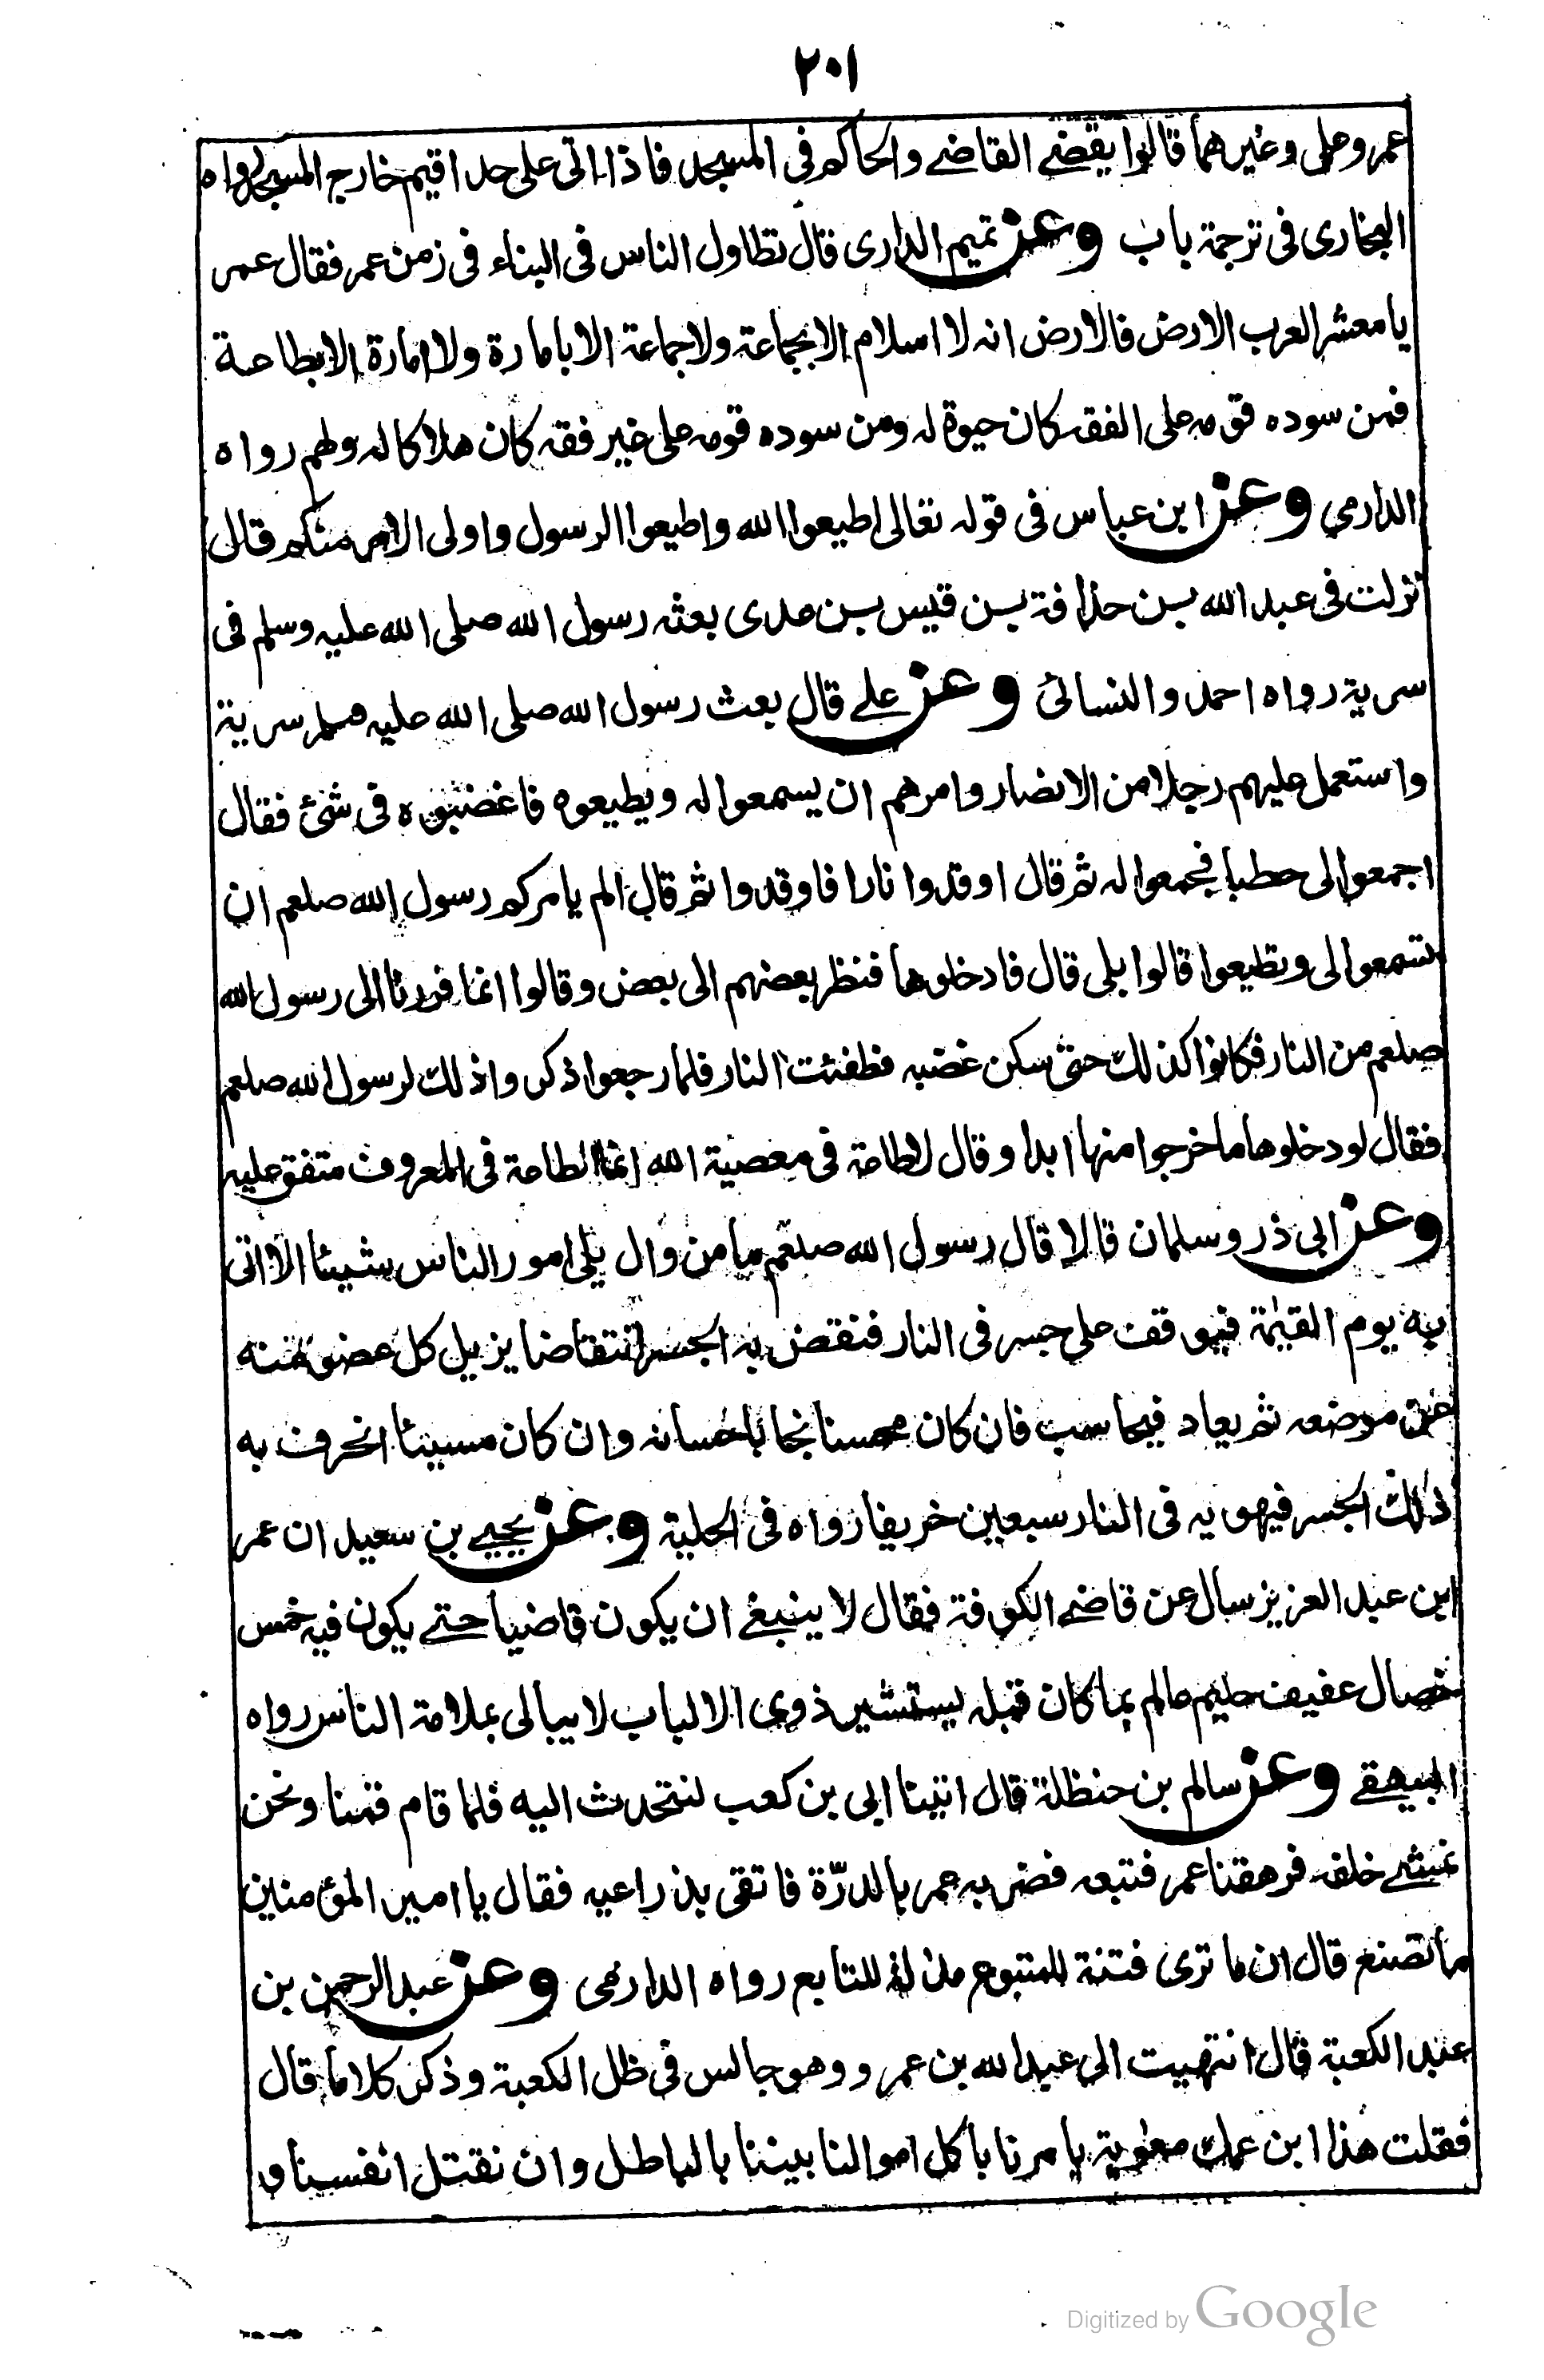 ٢٠١
عمر وعلى وغيرهما قالوا يقضے القاضے والحاكم فى المسجد فاذا اتى على حد اقيم خارج المسجد رواه
البخارى فى ترجمة باب وعن تميم الدارى قال تطاول الناس فى البناء فى زمن عمر فقال عمر
يا معشر العرب الارض فالارض انه لا اسلام الا بجماعة ولا جماعة الا بامارة ولا امارة الا بطاعة
فمن سوده قومه على الفقه كان حيوة له ومن سوده قومه على غير فقه كان هلاكا له ولهم رواه
الدارمي وعن ابن عباس فى قوله تعالى اطيعوا الله واطيعوا الرسول واولى الامر منكم قال
نزلت فى عبد الله بن حذافة بن قيس بن عدى بعثه رسول الله صلى الله عليه وسلم فى
سرية رواه احمد والنسائى وعن علے قال بعث رسول الله صلى الله عليه وسلم سرية
واستعمل عليهم رجلا من الانصار وامرهم ان يسمعوا له ويطيعوه فاغضبوه فى شئ فقال
اجمعوا لى حطبا فجمعوا له ثم قال اوقدوا نارا فاوقدوا ثم قال الم يامركم رسول الله صلعم ان
تسمعوا لى وتطيعوا قالوا بلى قال فادخلوها فنظر بعضهم الى بعض وقالوا انما فررنا الى رسول الله
صلعم من النار فكانوا كذلك حتى سكن غضبه فطفئت النار فلما رجعوا ذكروا ذلك لرسول الله صلعم
فقال لو دخلوها ما خرجوا منها ابدا وقال لا طاعة فى معصية الله انما الطاعة فى المعروف متفق عليه
وعن ابى ذر وسلمان قالا قال رسول الله صلعم ما من وال يلى امور الناس شيئا الا اتى
به يوم القيٰمة فيوقف على جسر فى النار فنقض به الجسر انتقاضا يزيل كل عضو منه
عن موضعه ثم يعاد فيحاسب فان كان محسنا نجا باحسانه وان كان مسيئا انحرف به
ذلك الجسر فيهو يه فى النار سبعين خريفا رواه فى الحلية وعن يحيے بن سعيد ان عمر
ابن عبد العزيز سال عن قاضے الكوفة فقال لا ينبغے ان يكون قاضيا حتے يكون فيه خمس
خصال عفيف حليم عالم بما كان قبله يستشير ذوى الالباب لا يبالى بملامة الناس رواه
البيهقے وعن سالم بن حنظلة قال اتينا ابى بن كعب لنتحدث اليه فلما قام قمنا ونحن
نمشے خلفه فرهقنا عمر فتبعه فضربه عمر بالدرّة فاتقى بذراعيه فقال يا امير المؤمنين
ما تصنع قال ان ما ترى فتنة للمتبوع مذلة للتابع رواه الدارمى وعن عبد الرحمن بن
عبد الكعبة قال انتهيت الى عبد الله بن عمرو وهو جالس فى ظل الكعبة وذكر كلاما قال
فقلت هذا ابن عمك معٰوية يامرنا باكل اموالنا بيننا بالباطل وان نقتل انفسنا و
Digitized by Google